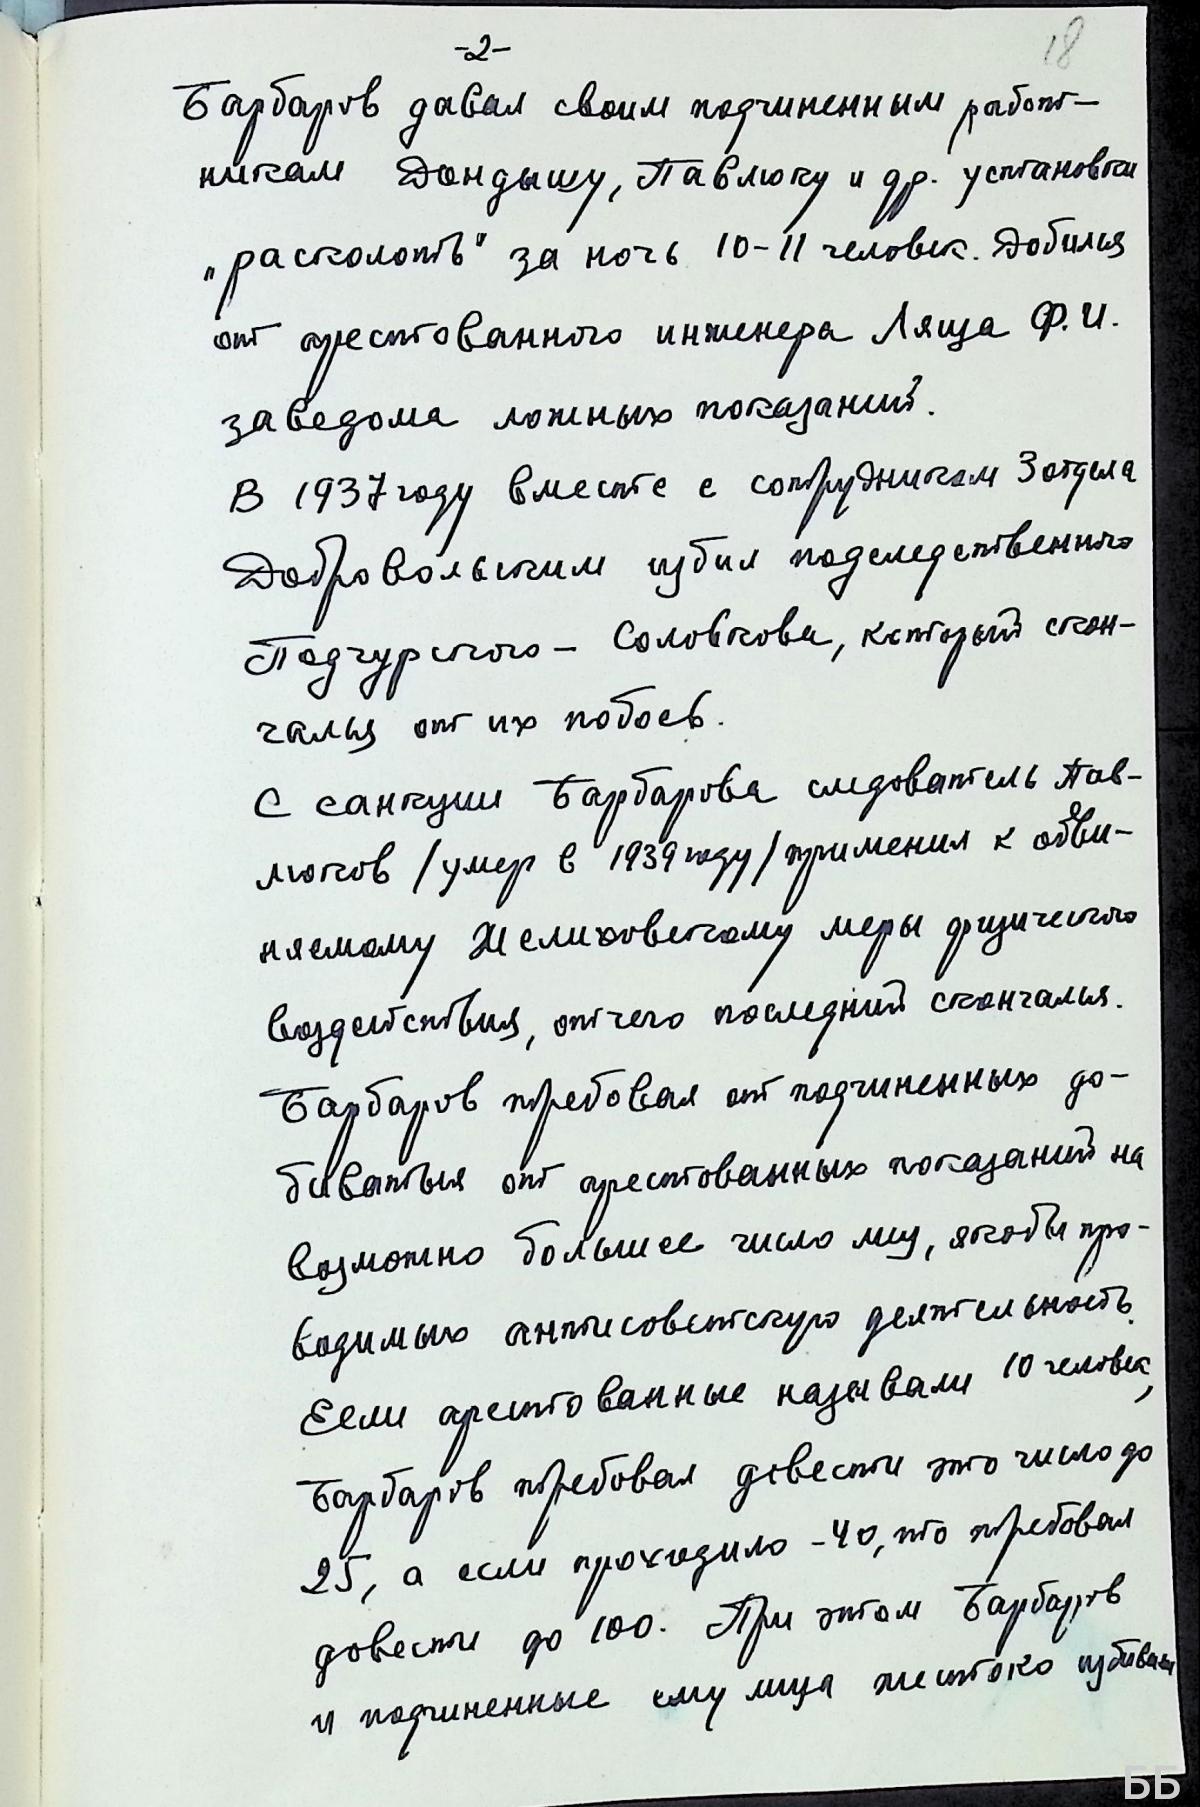 -2-
18
Барбаров давал своим подчиненным работ-
никам Дондышу, Павлюку и др. установки
„расколоть" за ночь 10-11 человек. Добился
от арестованного инженера Ляща Ф.И.
заведома ложных показаний.
В 1937 году вместе с сотрудником 3 отдела
Добровольским избил подследственного
Подгурского - Соловкова, который скон-
чался от их побоев.
С санкции Барбарова следователь Пав-
люков /умер в 1939 году/ применил к обви-
няемому Желиховскому меры физического
воздействия, отчего последний скончался.
Барбаров требовал от подчиненных до-
биваться от арестованных показаний на
возможно большее число лиц, якобы про-
водимых антисоветскую деятельность.
Если арестованные называли 10 человек,
Барбаров требовал довести это число до
25, а если проходило -40, то требовал
довести до 100. При этом Барбаров
и подчиненные ему лица жестоко избивали
ББ